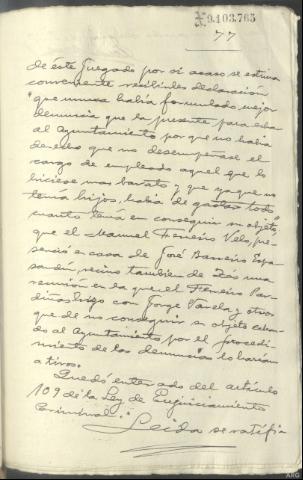 9.103.765
77
de éste Juzgado por si acaso se estima
conveniente recibirles declaración
"que nunca había formulado mejor
denuncia que la presente para echar
al Ayuntamiento por que no había
derecho que no desempeñase el
cargo de empleado aquel que lo
hiciese mas barato y que ya que no
tenia hijos, había de gastar todo
cuanto tenia en conseguir su objeto,
que el Manuel Ferreiro Velo, pre-
senció en casa de José Barreiro Espa-
sandin, vecino tambien de Zás una
reunión en la que el Ferreiro Par-
diñas dijo con Jorge Varela y otros
que de no conseguir su objeto echan-
do al Ayuntamiento por el procedi-
miento de las denuncias lo harían
a tiros.
Quedó enterado del artículo
109 de la Ley de Enjuiciamiento
Criminal."
Leida se ratifia
ARG